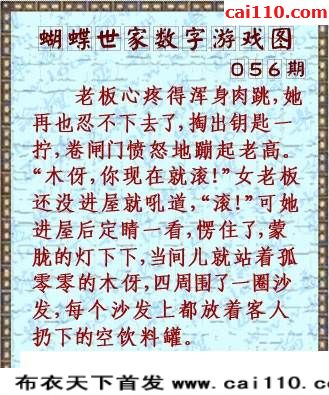 cai110.com
蝴蝶世家数字游戏图
056期
老板心疼得浑身肉跳,她
再也忍不下去了,掏出钥匙一
拧,卷闸门愤怒地蹦起老高。
“木伢,你现在就滚!”女老板
还没进屋就吼道,“滚!”可她
进屋后定睛一看,愣住了,蒙
胧的灯下下,当间儿就站着孤
零零的木伢,四周围了一圈沙
发,每个沙发上都放着客人
扔下的空饮料罐。
布衣天下首发 www.cai110.c